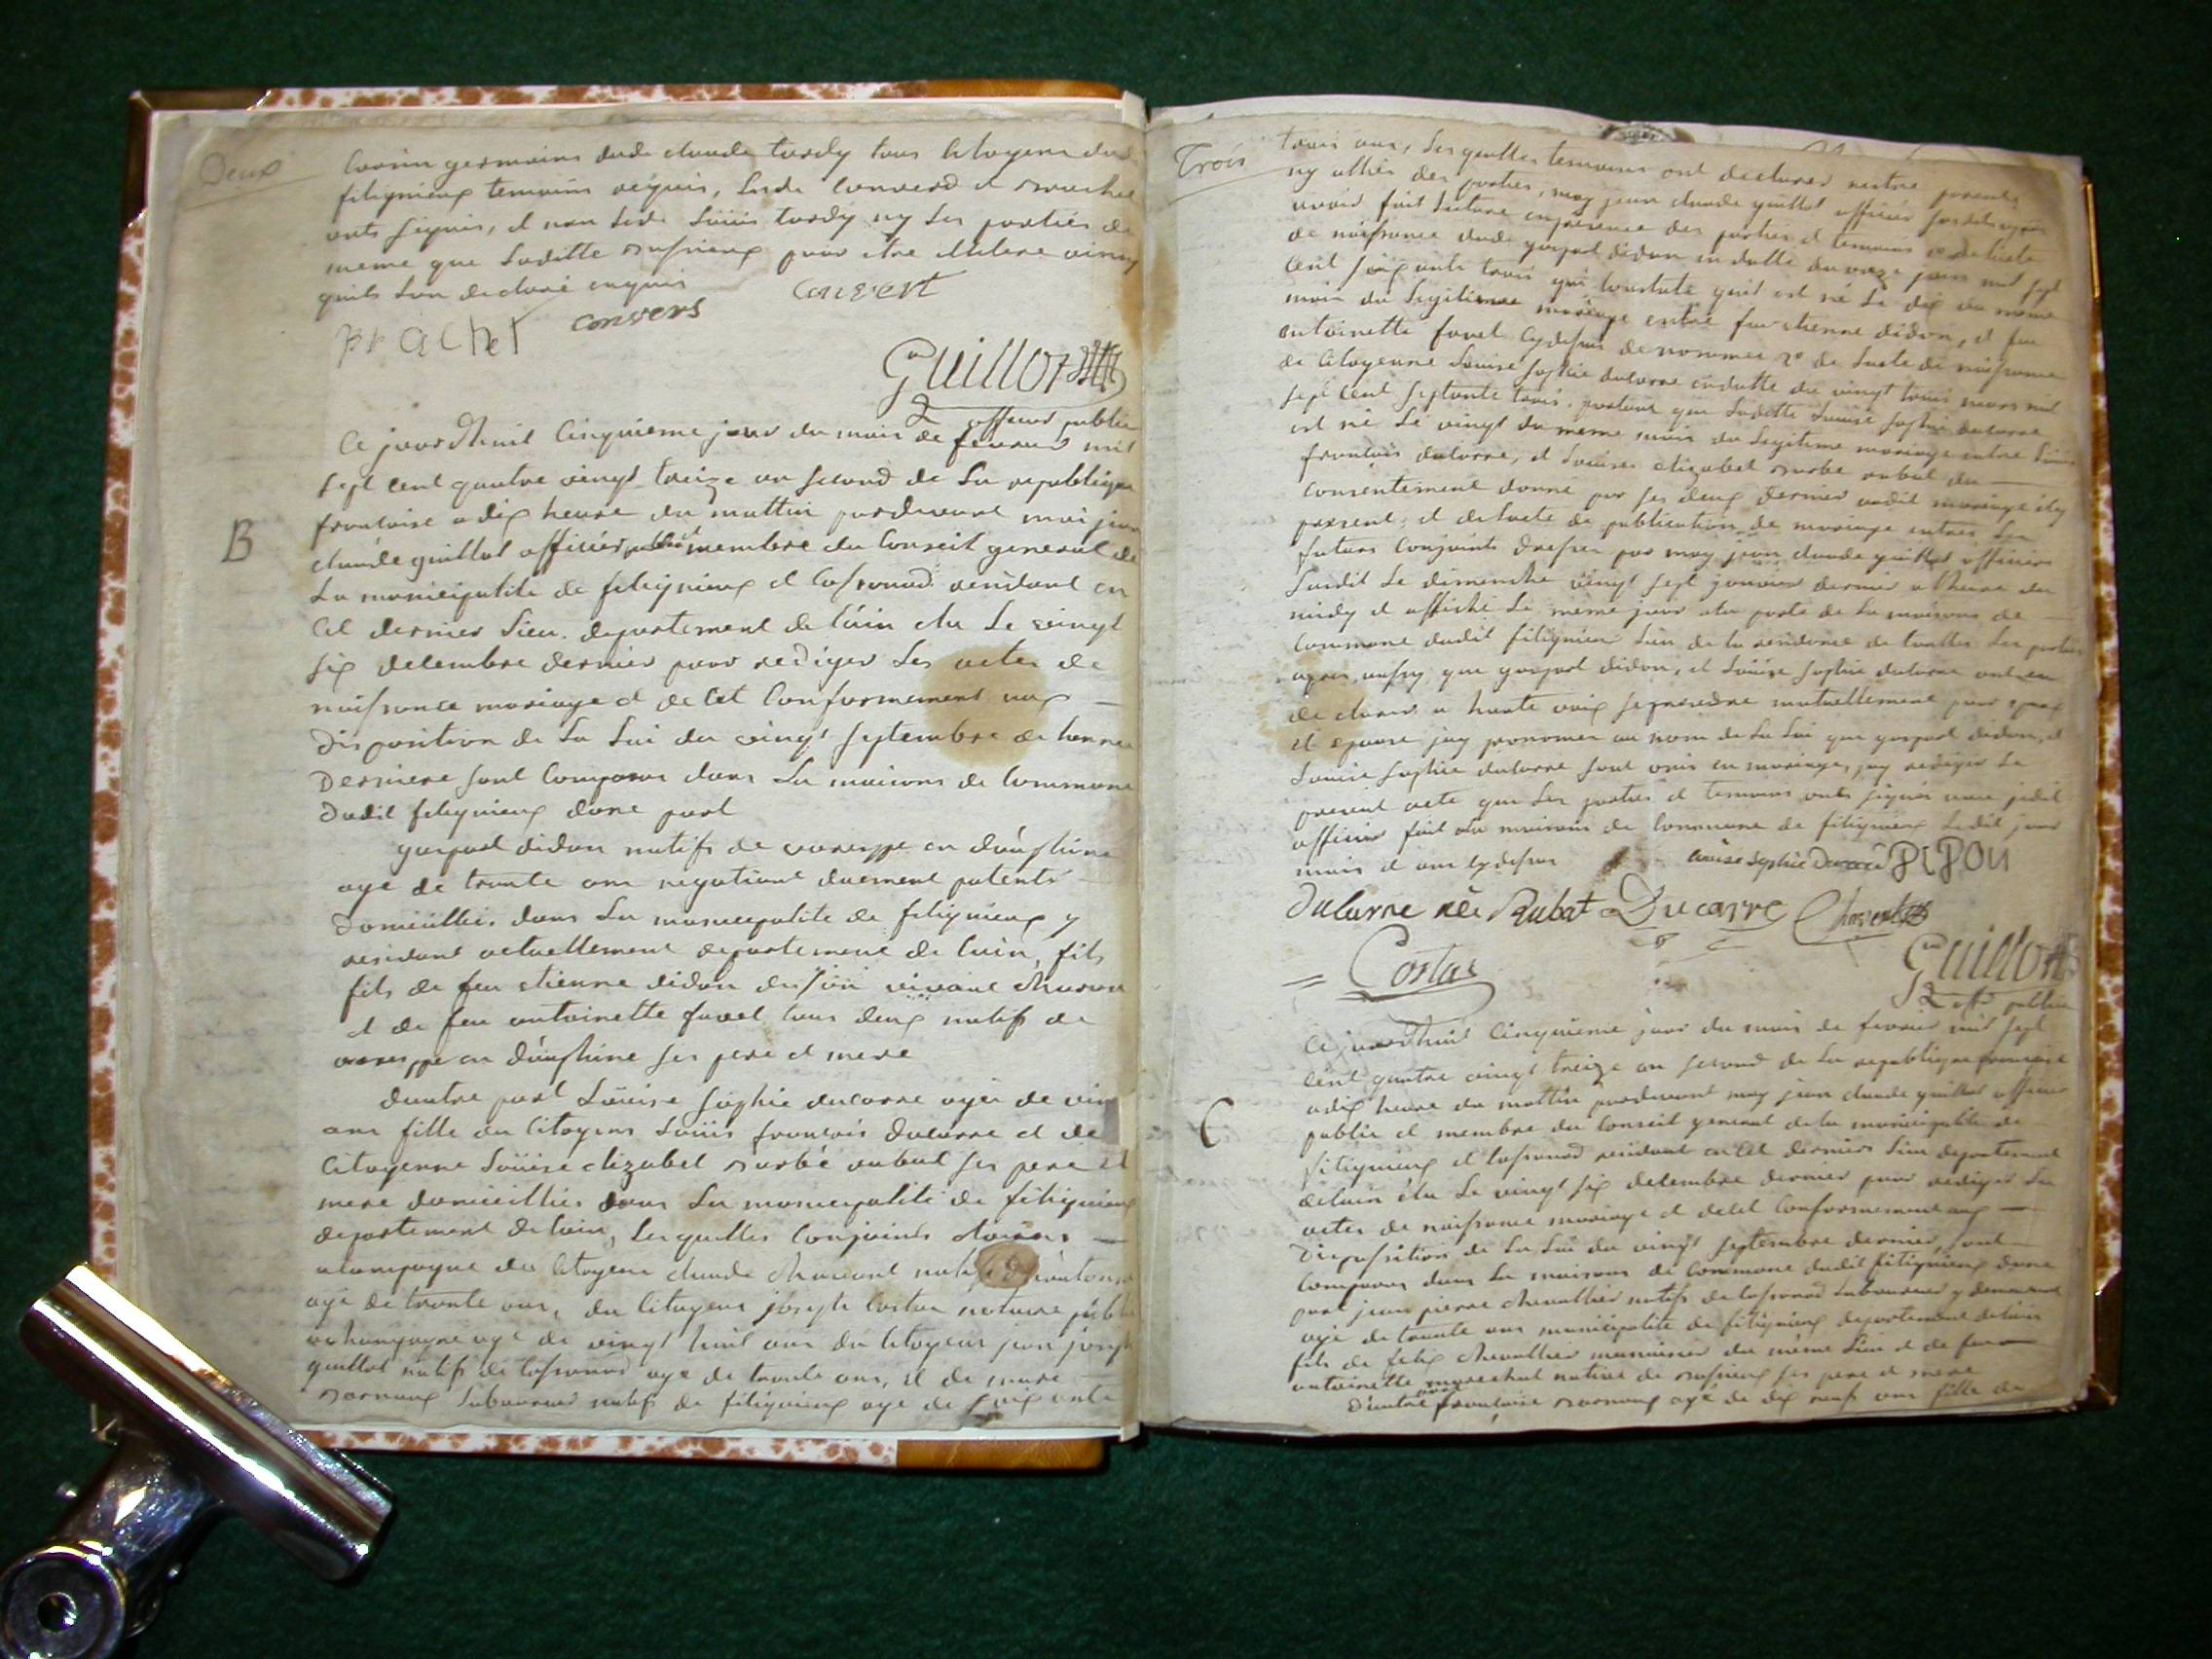 Deux
Cousin germains dudi claude tardy tous Citoyens dud
filignieux temoins requis, Ledi Convers et Brachet
onts signés, et non Ledi Loüis tardy ny Les parties de
meme que Laditte pour etre
quils Lon declaré enquis
Convert
Brachet convers
Guillot
officier public
Ce jourdhuit Cinquieme jour du mois de fevrier mil
sept cent quatre vingt treize an second de La republique
francoise a dix heure du mattin pardevant moi jean
claude guillot officier public et membre du Conseil general de
B
La municipalite de filignieux et residant en
Cet dernier Lieu. departement de Lain elu Le vingt
six decembre dernier pour rediger Les actes de
naissance mariage et decet Conformement aux
disposition de La Loi du vingt septembre de Lannee
derniere sont Comparus dans La maisons de Commune
dudit filignieux dune part
gaspard didon natifs de voreppe en dauphine
age de trante ans negotiant duement patenté
domicillié dans La municipalite de filignieux y
residant actuellement departement de Lain, fils
fils de feu etienne didon vivant
et de feu antoinette favet tous deux natifs de
voreppe en dauphine ses pere et mere
dautre part Loüise sophie ducarre agée de vin
ans fille du Citoyens Loüis francois ducarre et de
Citoyenne Loüise elizabet rubat ses pere et
mere domicilliés dans La municipalité de filignieux
departement de Lain, Les quelles Conjoints
acompagne du Citoyen claude natifs
age de trante ans, du Citoyens joseph Costaz notaire public
a champagne age de vingt huit ans du Citoyens jean joseph
guillot natifs de age de trante ans, et de
Laboureur natifs de filignieux age de soix ante
Trois
trois ans, Les quelles temoins ont declares nestre parents
ny alliés des parties, moy jean claude guillot officier
avoir fait Lecture enpresence des parties et temoins de Lacte
de naissance dudi gaspard didon en datte du onze juin mil sept
cent soix ante trois qui Constate quil est né Le dix du meme
mois du Legitimes mariage entre feu etienne didon, et feu
antoinette favet cydessus denommes de Lacte de naissance
de Citoyenne Loüise sophie ducarre endatte du vingt trois mars mil
sept cent septante trois. portant que Laditte Loüise sophie ducarre
est né Le vingt du meme mois du Legitime mariage entre Loüis
francois ducarre, et Loüise elizabet rubat du
Consentement donné par ses deux dernier audit mariage icy
present, et de Lacte de publication de mariage entres Les
futurs Conjoints dresser par moy jean claude guillot officier
susdit Le dimenche vingt sept janvier dernier a Lheure du
midy et affiché Le même jour ala porte de La maisons de
Commune dudit filignieux Lieu de la residence de touttes Les parties
apres, aussy que gaspard didon, et Loüise sophie ducarre ont eu
declarer a haute voix se prendre mutuellement pour epoux
et epouse jay prononcer au nom de La Loi que gaspard didon, et
Loüise sophie ducarre sont unis en mariage, jay rediger Le
present acte que Les parties et temoins onts signés avec
officier fait ala maisons de Commune de filignieux Ledit jour
mois et ans cydessus
Louise sophie Ducarre DIDON
Ducarre née Rubat Ducarre
Costaz Guillot
public
Ce jourdhuit Cinquieme jour du mois de fevrier mil sept
cent quatre vingt treize an second de La republique francoise
adix heure du mattin pardevant moy jean claude guillot officier
C
public et membre du Conseil general de la municipalité de
filignieux et residant en Cet derniers Lieu departement
delain élu Le vingt six decembre dernier pour rediger Les
actes de naissance mariage et decet Conformement aux
disposition de La Loi du vingt septembre dernier, sont
Comparus dans La maisons de Commune dudit filignieux dune
part jean pierre chevallier natifs de Laboureur y demeurant
age de trante ans municipalite de filignieux departement delain
fils de felix chevallier du même Lieu et de feue
antoinette marechal native de ses pere et mere
dautre part francoise agé de dix neuf ans fille de